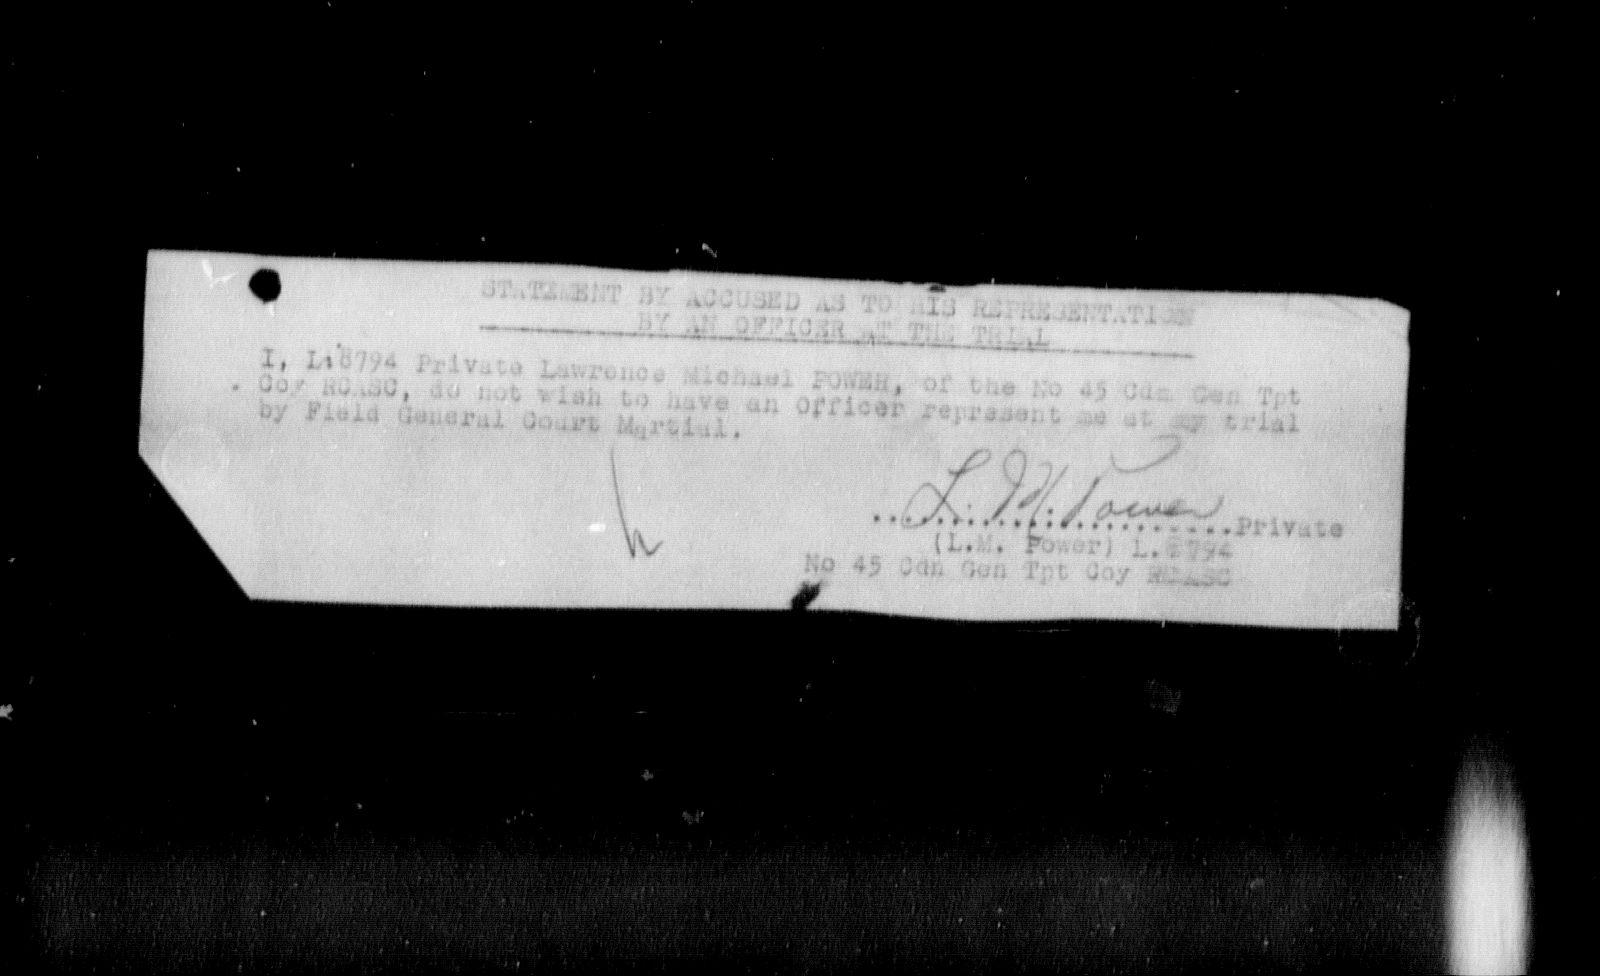 STATEMENT BY ACCUSED AS TO HIS REPRESENTATION
BY AN OFFICER AT THE TRIAL
I, L.8794 Private Lawrence Michael POWER, of the No 45 Cdn Gen Tpt
Coy RCASC, do not wish to have an Officer represent me at my trial
by Field General Court Martial.
L. M. Power
........................Private
(L.M. Power) L.8794
No 45 Cdn Gen Tpt Coy RCASC